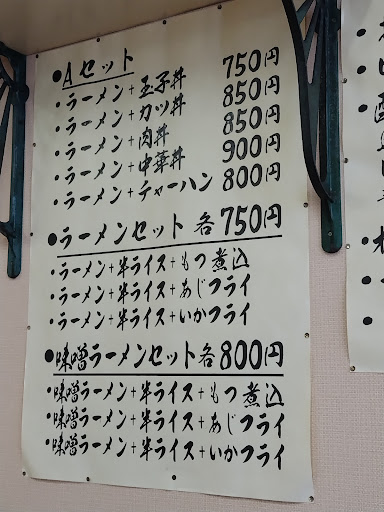 ●Aセット
・ラーメン+玉子丼 750円
・ラーメン+カツ丼 850円
・ラーメン+肉丼 850円
・ラーメン+中華丼 900円
・ラーメン+チャーハン 800円
●ラーメンセット 各750円
・ラーメン+半ライス+もつ煮込
・ラーメン+半ライス+あじフライ
・ラーメン+半ライス+いかフライ
●味噌ラーメンセット各800円
・味噌ラーメン+半ライス+もつ煮込
・味噌ラーメン+半ライス+あじフライ
・味噌ラーメン+半ライス+いかフライ